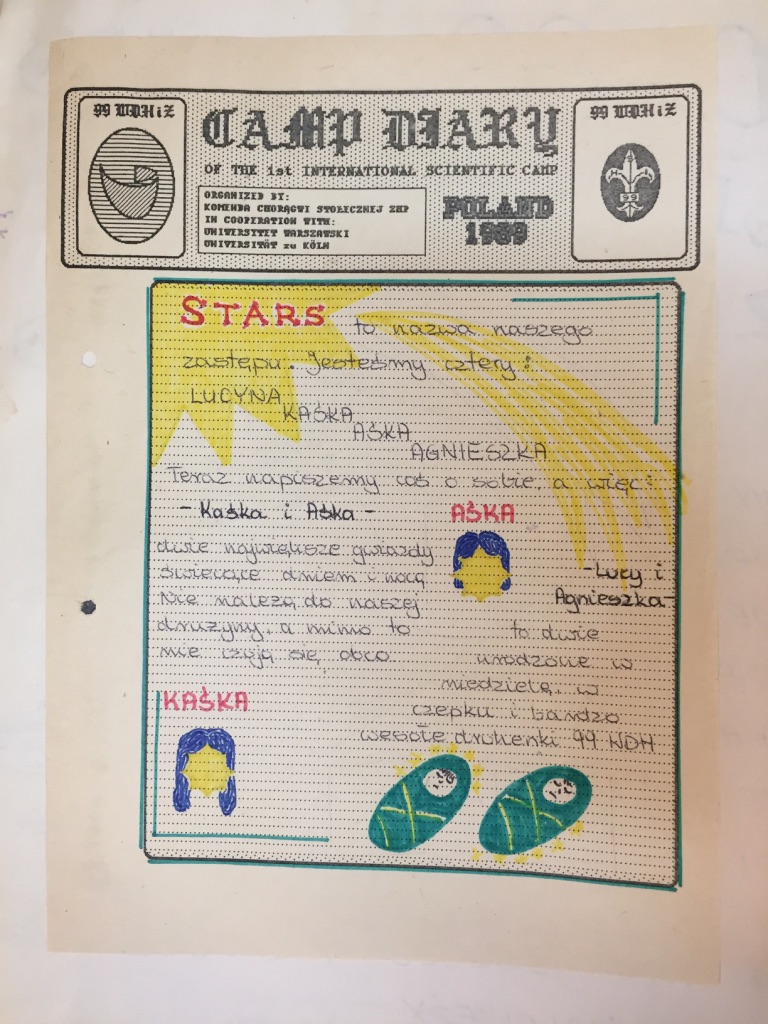 99 WDHiZ
CAMP DIARY
OF THE 1st INTERNATIONAL SCIENTIFIC CAMP
ORGANIZED BY:
KOMENDA CHORĄGWI STOŁECZNEJ ZHP
IN COOPERATION WITH:
UNIWERSYTET WARSZAWSKI
UNIVERSITÄT zu KÖLN
POLAND
1989
99 WDHiZ
99
STARS to nazwa naszego
zastępu. Jesteśmy cztery:
LUCYNA
KAŚKA
AŚKA
AGNIESZKA
Teraz napiszemy coś o sobie, a więc:
- Kaśka i Aśka -
dwie największe gwiazdy
świecące dniem i nocą
Nie należą do naszej
drużyny, a mimo to
nie czują się obco.
AŚKA
- Lucy i
Agnieszka -
to dwie
urodzone w
niedzielę, w
czepku i bardzo
wesołe druhenki 99 WDH
KAŚKA